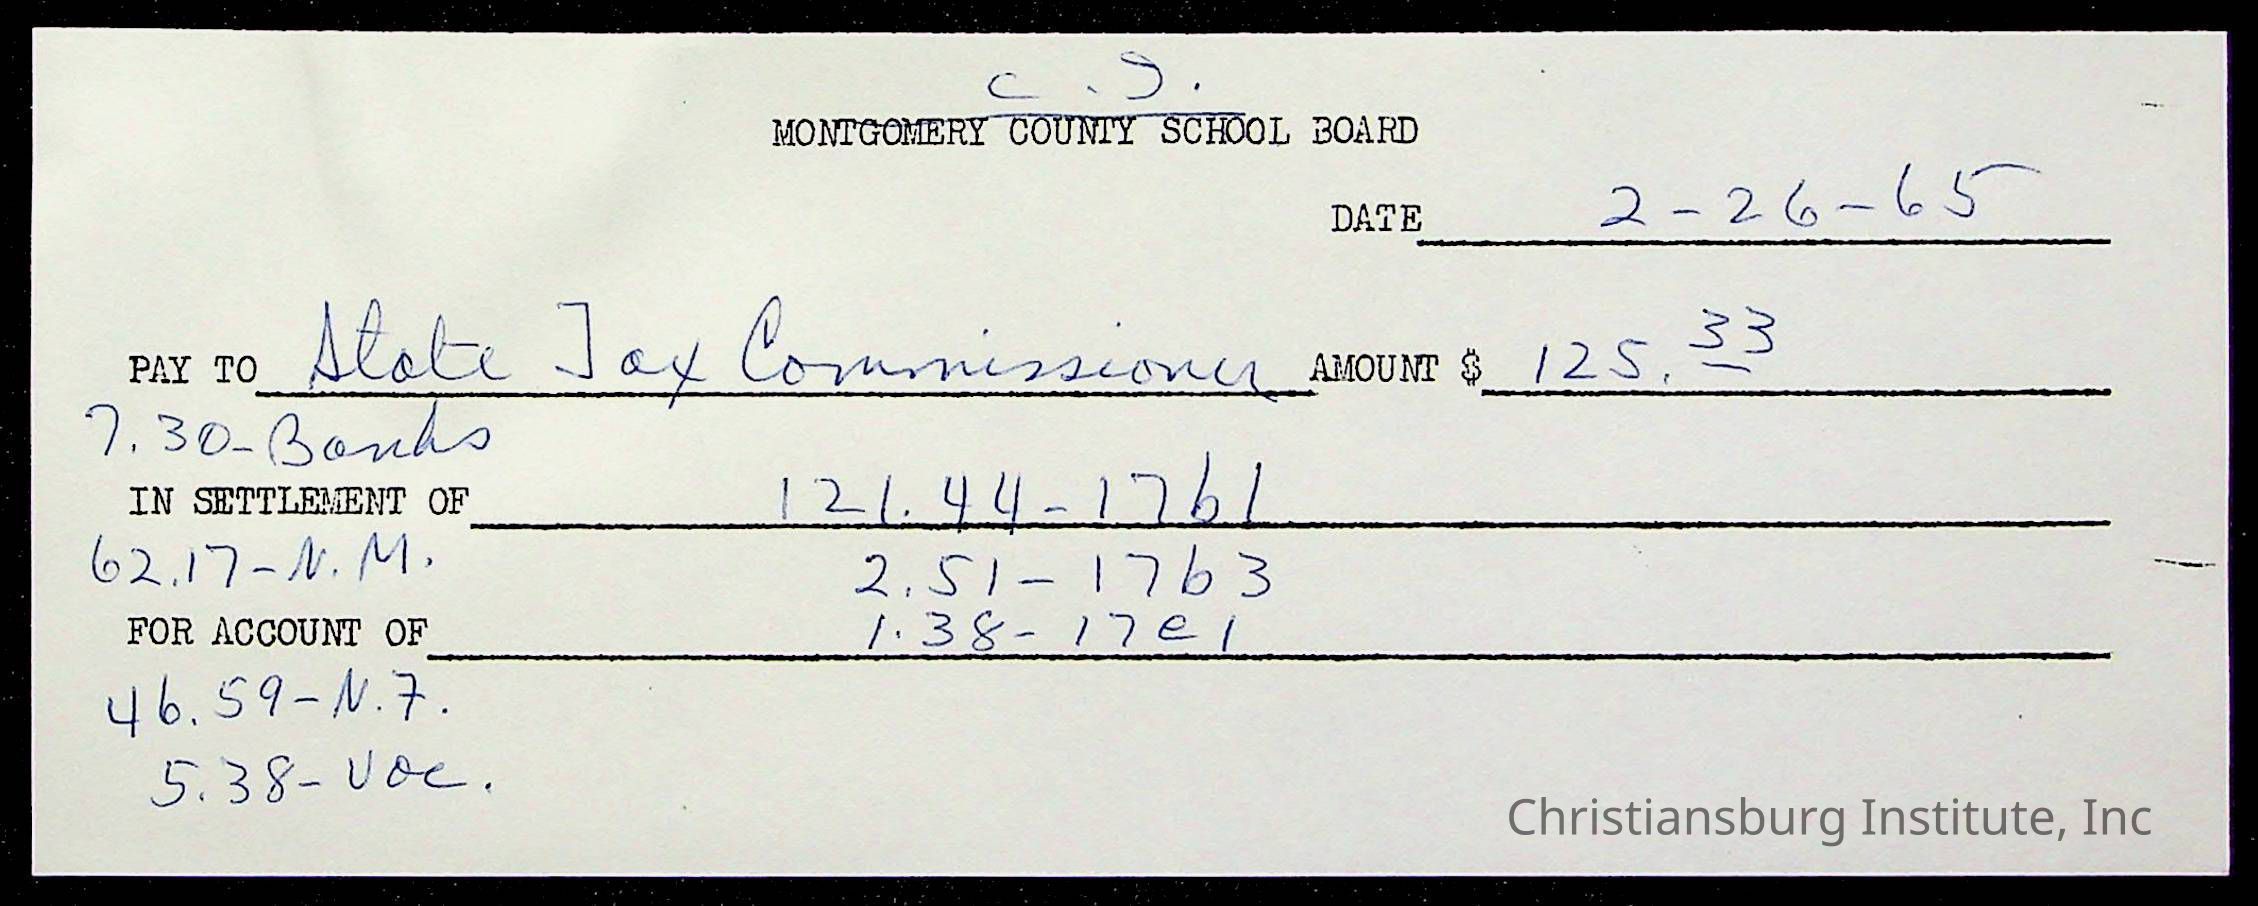 C. I.
MONTGOMERY COUNTY SCHOOL BOARD
DATE 2-26-65
PAY TO State Tax Commissioner AMOUNT $ 125.33
7.30-Banks
IN SETTLEMENT OF 121.44-17b1
62.17-N.M.
2.51-17b3
FOR ACCOUNT OF 1.38-17e1
46.59-N.F.
5.38-Voc.
Christiansburg Institute, Inc